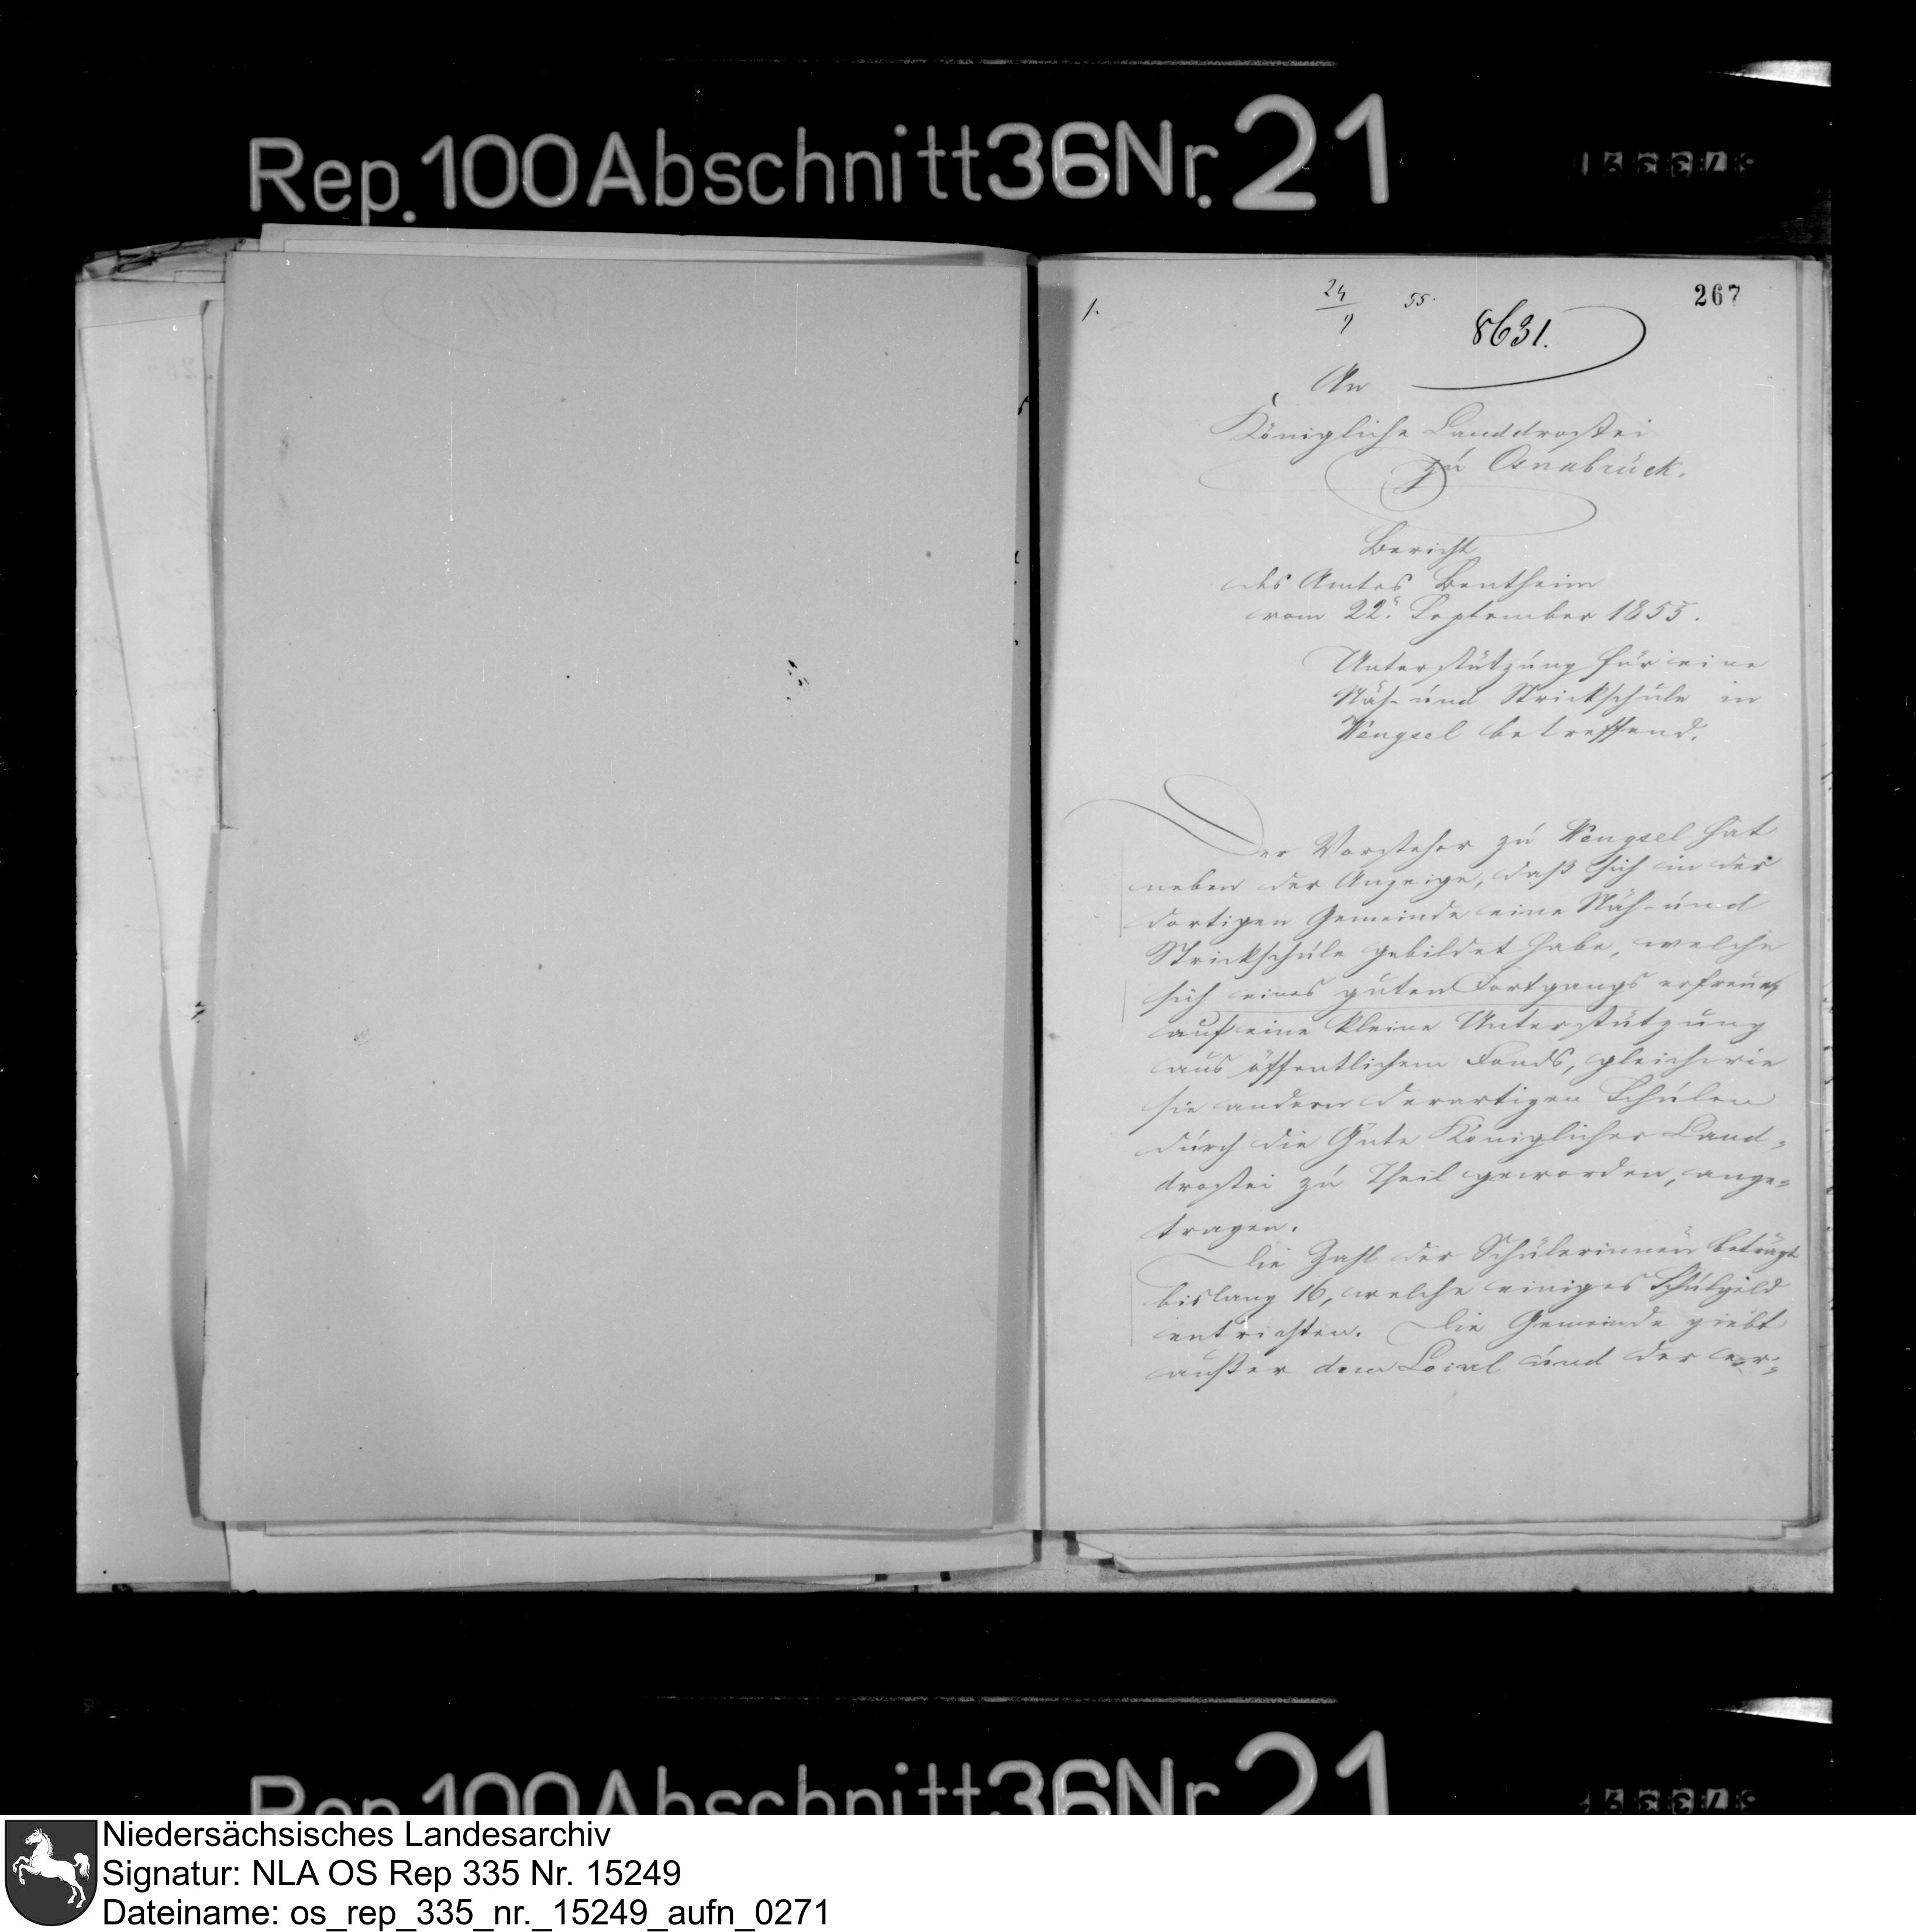 Rep. 100 Abschnitt 36 Nr. 21
267
1.
24/9 55.
8631.
An
Königliche Landdrostei
zu Osnabrück.
Bericht
des Amtes Bentheim
vom 22. September 1855.
Unterstützung für eine
Näh- und Strickschule in
Wengsel betreffend.
Der Vorsteher zu Wengsel hat
neben der Anzeige, daß sich in der
dortigen Gemeinde eine Näh- und
Strickschule gebildet habe, welche
sich eines guten Fortgangs erfreue,
auf eine kleine Unterstützung
aus öffentlichem Fonds, gleichwie
sie andern derartigen Schulen
durch die Güte Königlicher Land-
drostei zu Theil geworden, ange-
tragen.
Die Zahl der Schülerinnen beträgt
bislang 16, welche einiges Schulgeld
entrichten. Die Gemeinde giebt
außer dem Local und der er-
Rep. 100 Abschnitt 36 Nr. 21
Niedersächsisches Landesarchiv
Signatur: NLA OS Rep 335 Nr. 15249
Dateiname: os_rep_335_nr._15249_aufn_0271